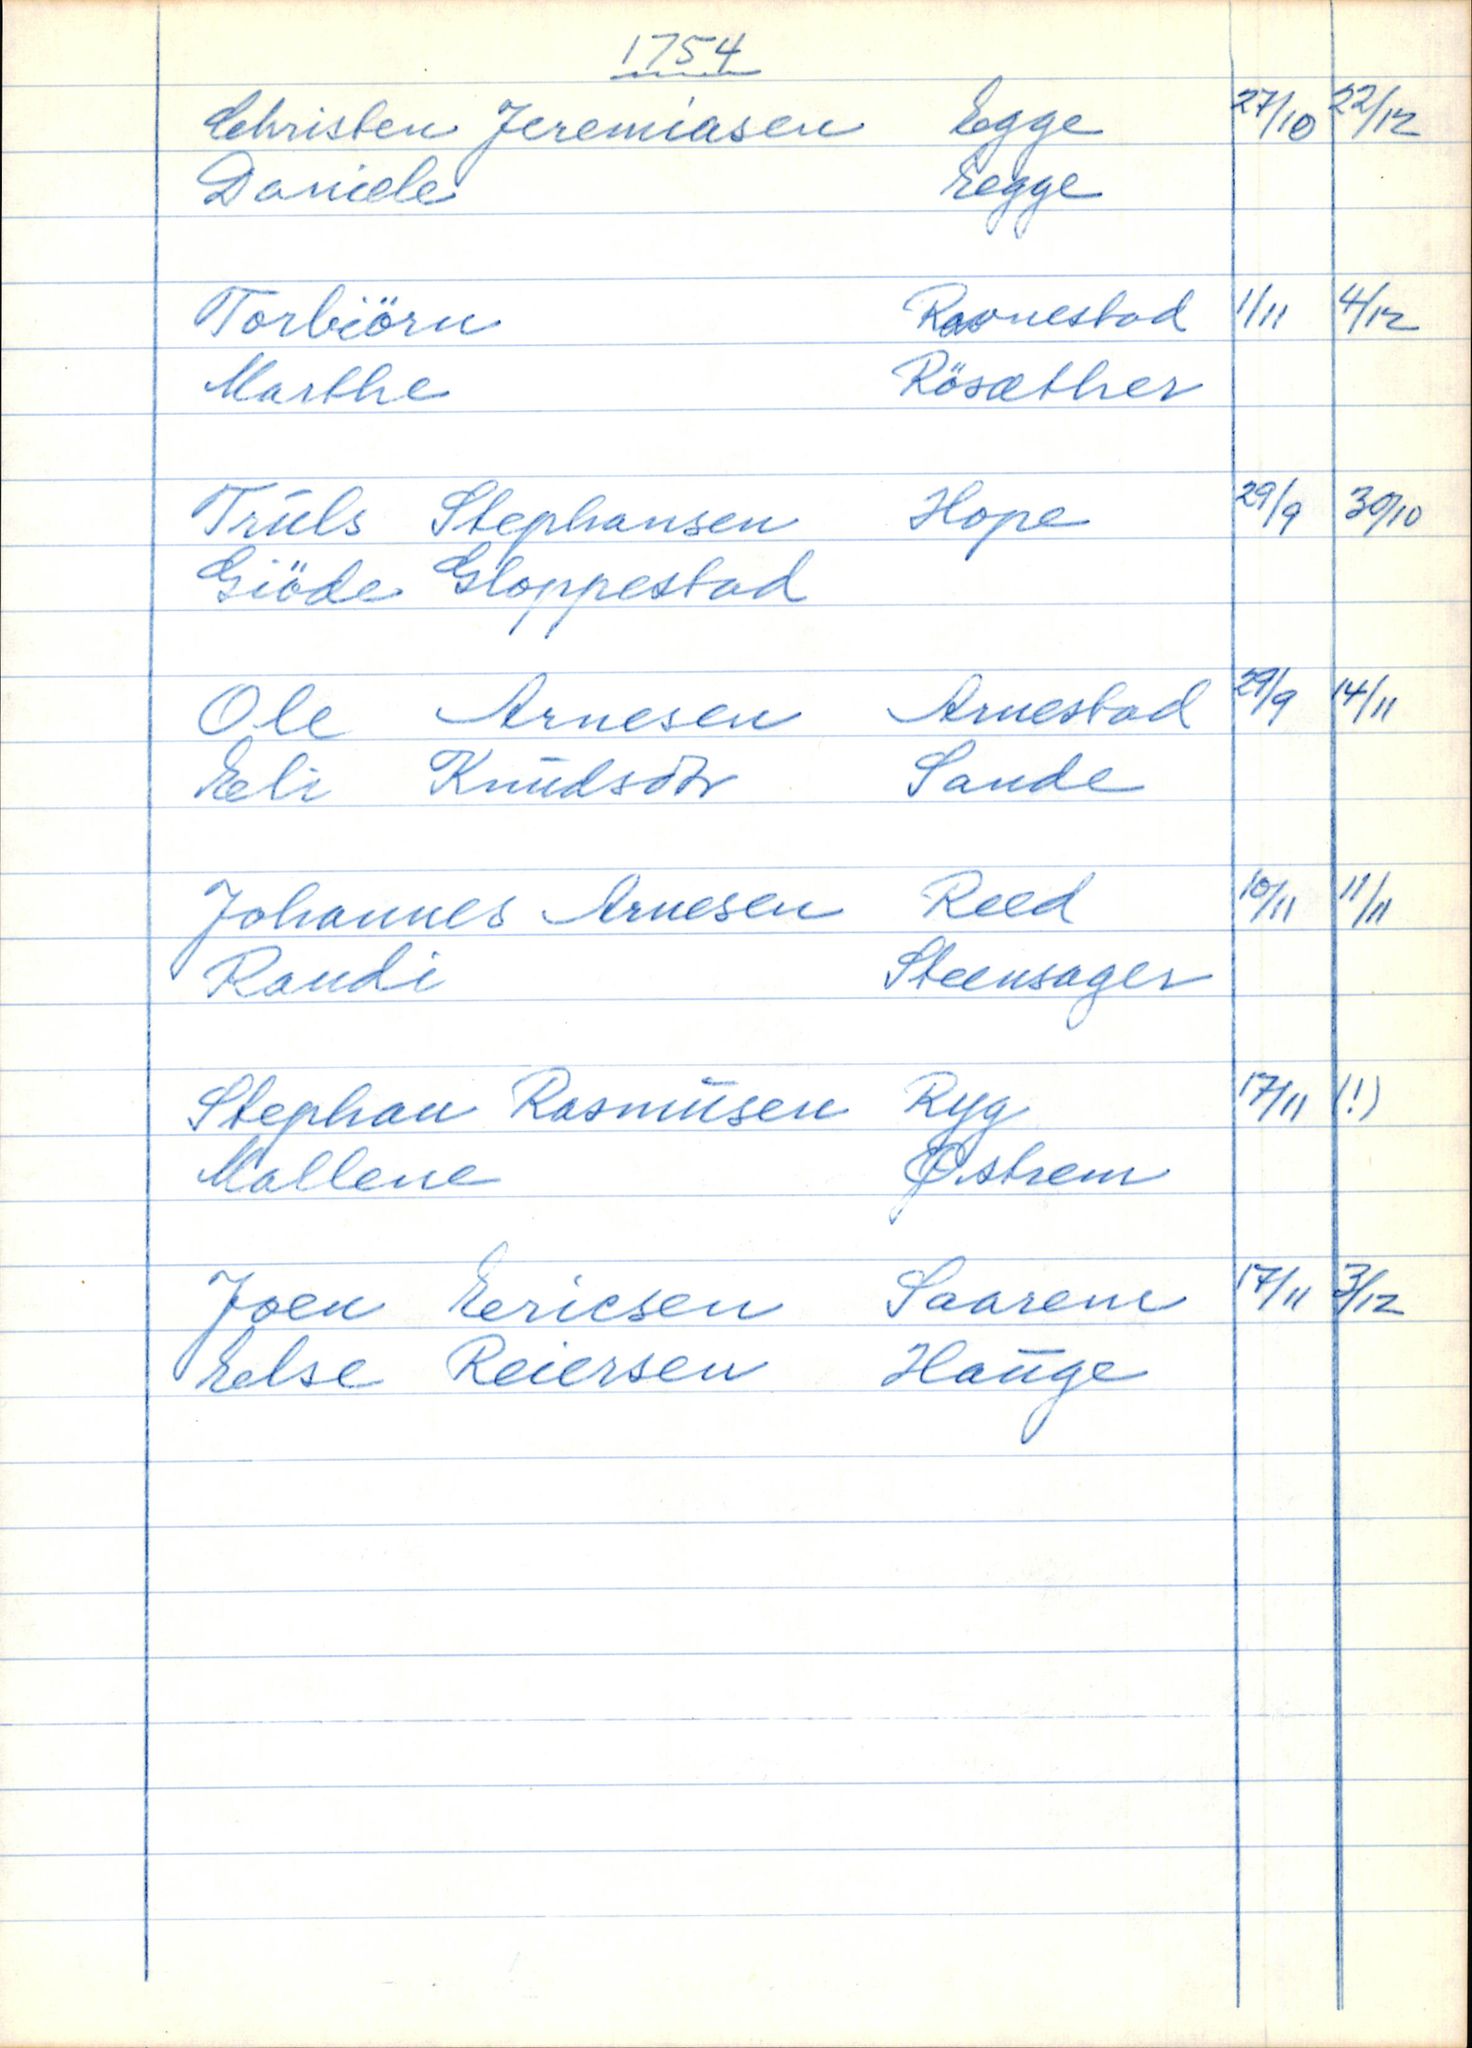 1754
Christen Jeremiasen Egge 27/10 22/12
Daniele Egge
Torbiörn Ravnestad 1/11 4/12
Marthe Rösæther
Trŭls Stephansen Hope 29/9 30/10
Giöde Gloppestad
Ole Arnesen Arnestad 29/9 14/11
Eli Knŭdsdtr Sande
Johannes Arnesen Reed 10/11 11/11
Randi Steensager
Stephan Rasmŭsen Ryg 17/11 (!)
Mallene Østrem
Joen Ericsen Saarem 17/11 3/12
Else Reiersen Haŭge